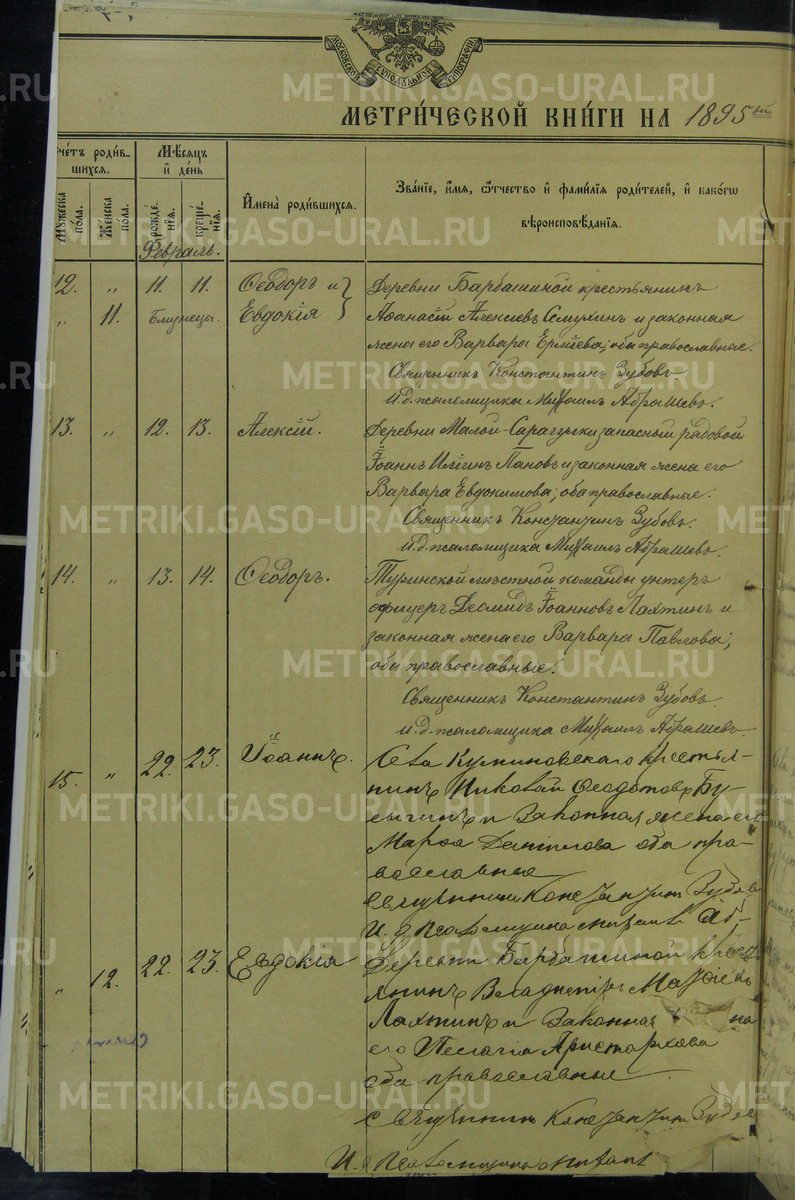 МОСКОВСКОЙ СѴНОДАЛЬНОЙ ТИПОГРАФІИ
МЕТРИ́ЧЕСКОЙ КНИ́ГИ НА 1895ый
Сче́тъ роди́вшихся.
Мꙋ́жеска по́ла.
Же́нска по́ла.
Мѣ́сяцъ и҆ де́нь
рожде́нїя.
креще́нїя.
И҆мена̀ роди́вшихся.
Зва́нїе, и҆́мя, ѻ҆́тчество и҆ фами́лїя роди́телей, и҆ како́гѡ
вѣроисповѣ́данїя.
Февраль.
12. „ 11. 11. Ѳеодоръ и
„ 11. Близнецы. Евдокія
Деревни Барбашиной крестьянинъ
Аѳанасій Алексѣевъ Семухинъ и законная
жена его Варвара Ермiева; оба православные.
Священникъ Константинъ Зубовъ.
И. д. псаломщика Михаилъ Абрашевъ.
13. „ 12. 13. Алексій.
Деревни Малой-Сарагулки запасный рядовой
Іоаннъ Ильинъ Пановъ и законная жена его
Варвара Евдокимова; оба православные.
Священникъ Константинъ Зубовъ.
и. д. псаломщика Михаилъ Абрашевъ.
14. „ 13. 14. Ѳеодоръ.
Туринской мѣстной команды унтеръ
офицеръ Діомидъ Іоанновъ Лахтинъ и
законная жена его Варвара Павлова;
оба православные.
Священникъ Константинъ Зубовъ.
и. д. псаломщика Михаилъ Абрашевъ.
15. „ 22. 23. Іоаннъ.
Села Куминовскаго крестья-
нинъ Николай Ѳедотовъ Бу-
сыгинъ и Законная жена его
Марѳа Данилова оба пра-
вославные
Священникъ Константинъ Зубовъ
И. д. Псаломщика Михаилъ Аб-
„ 12. 22. 23. Евдокія
Деревни Барбашиной крест
янинъ Владимiръ Матѳіевъ
Лахтинъ и Законная на
его Пелагія Аристархова
оба православные
Священникъ Константинъ Зубовъ
И. д Псаломщика Михаилъ
METRIKI.GASO-URAL.RU